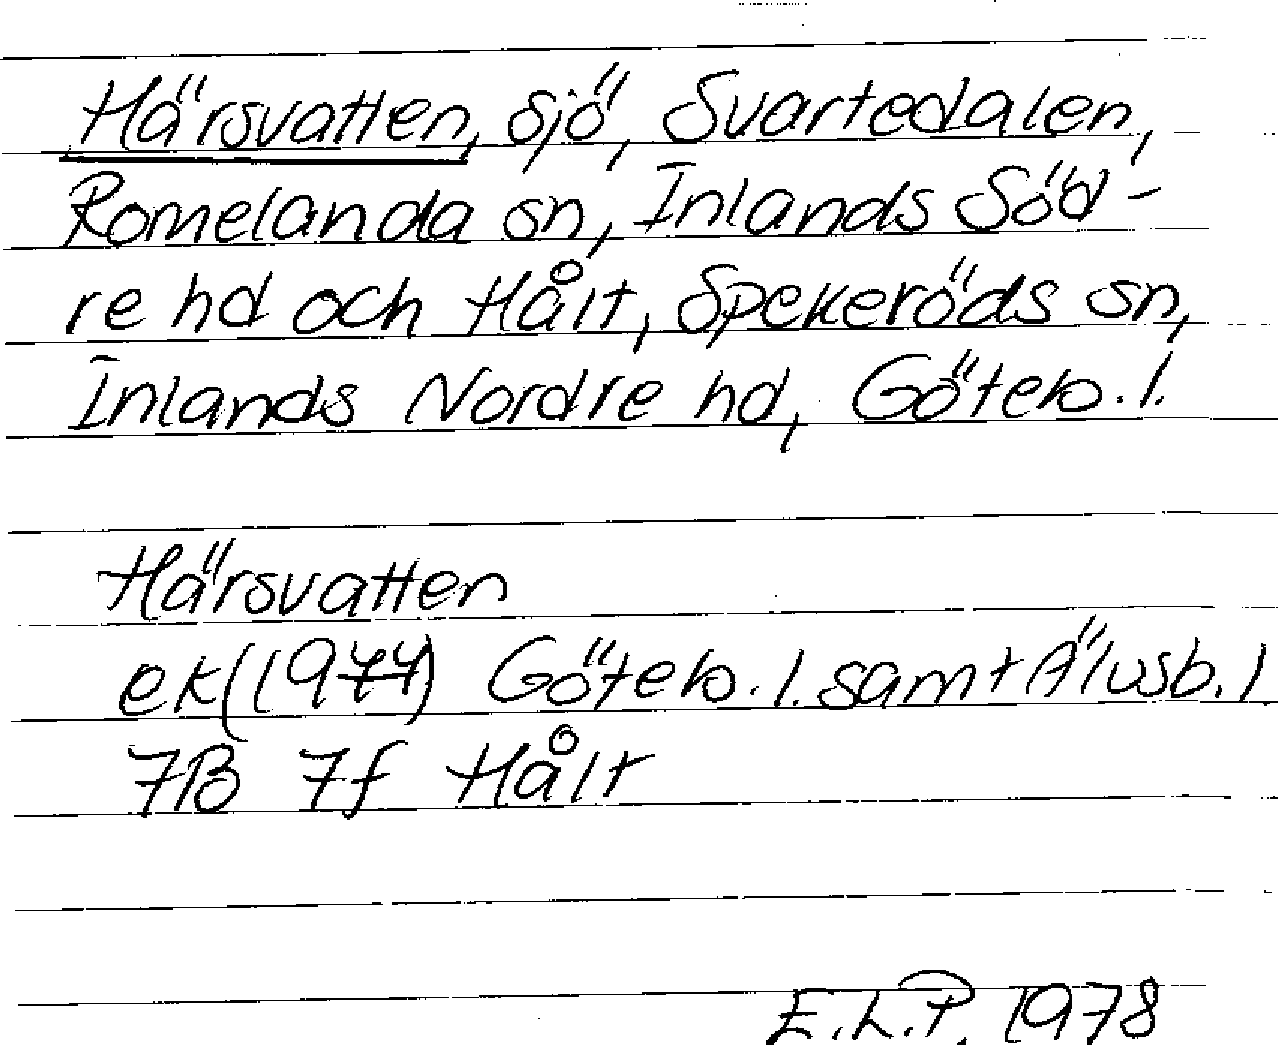 Härsvatten, sjö, Svartedalen,
Romelanda sn, Inlands Söd-
re hd och Hålt, Spekeröds sn,
Inlands Nordre hd, Göteb.l.
Härsvatten
ek (1974) Göteb.l. samt Älvsb.l
7B 7f Hålt
E.L.P. 1978